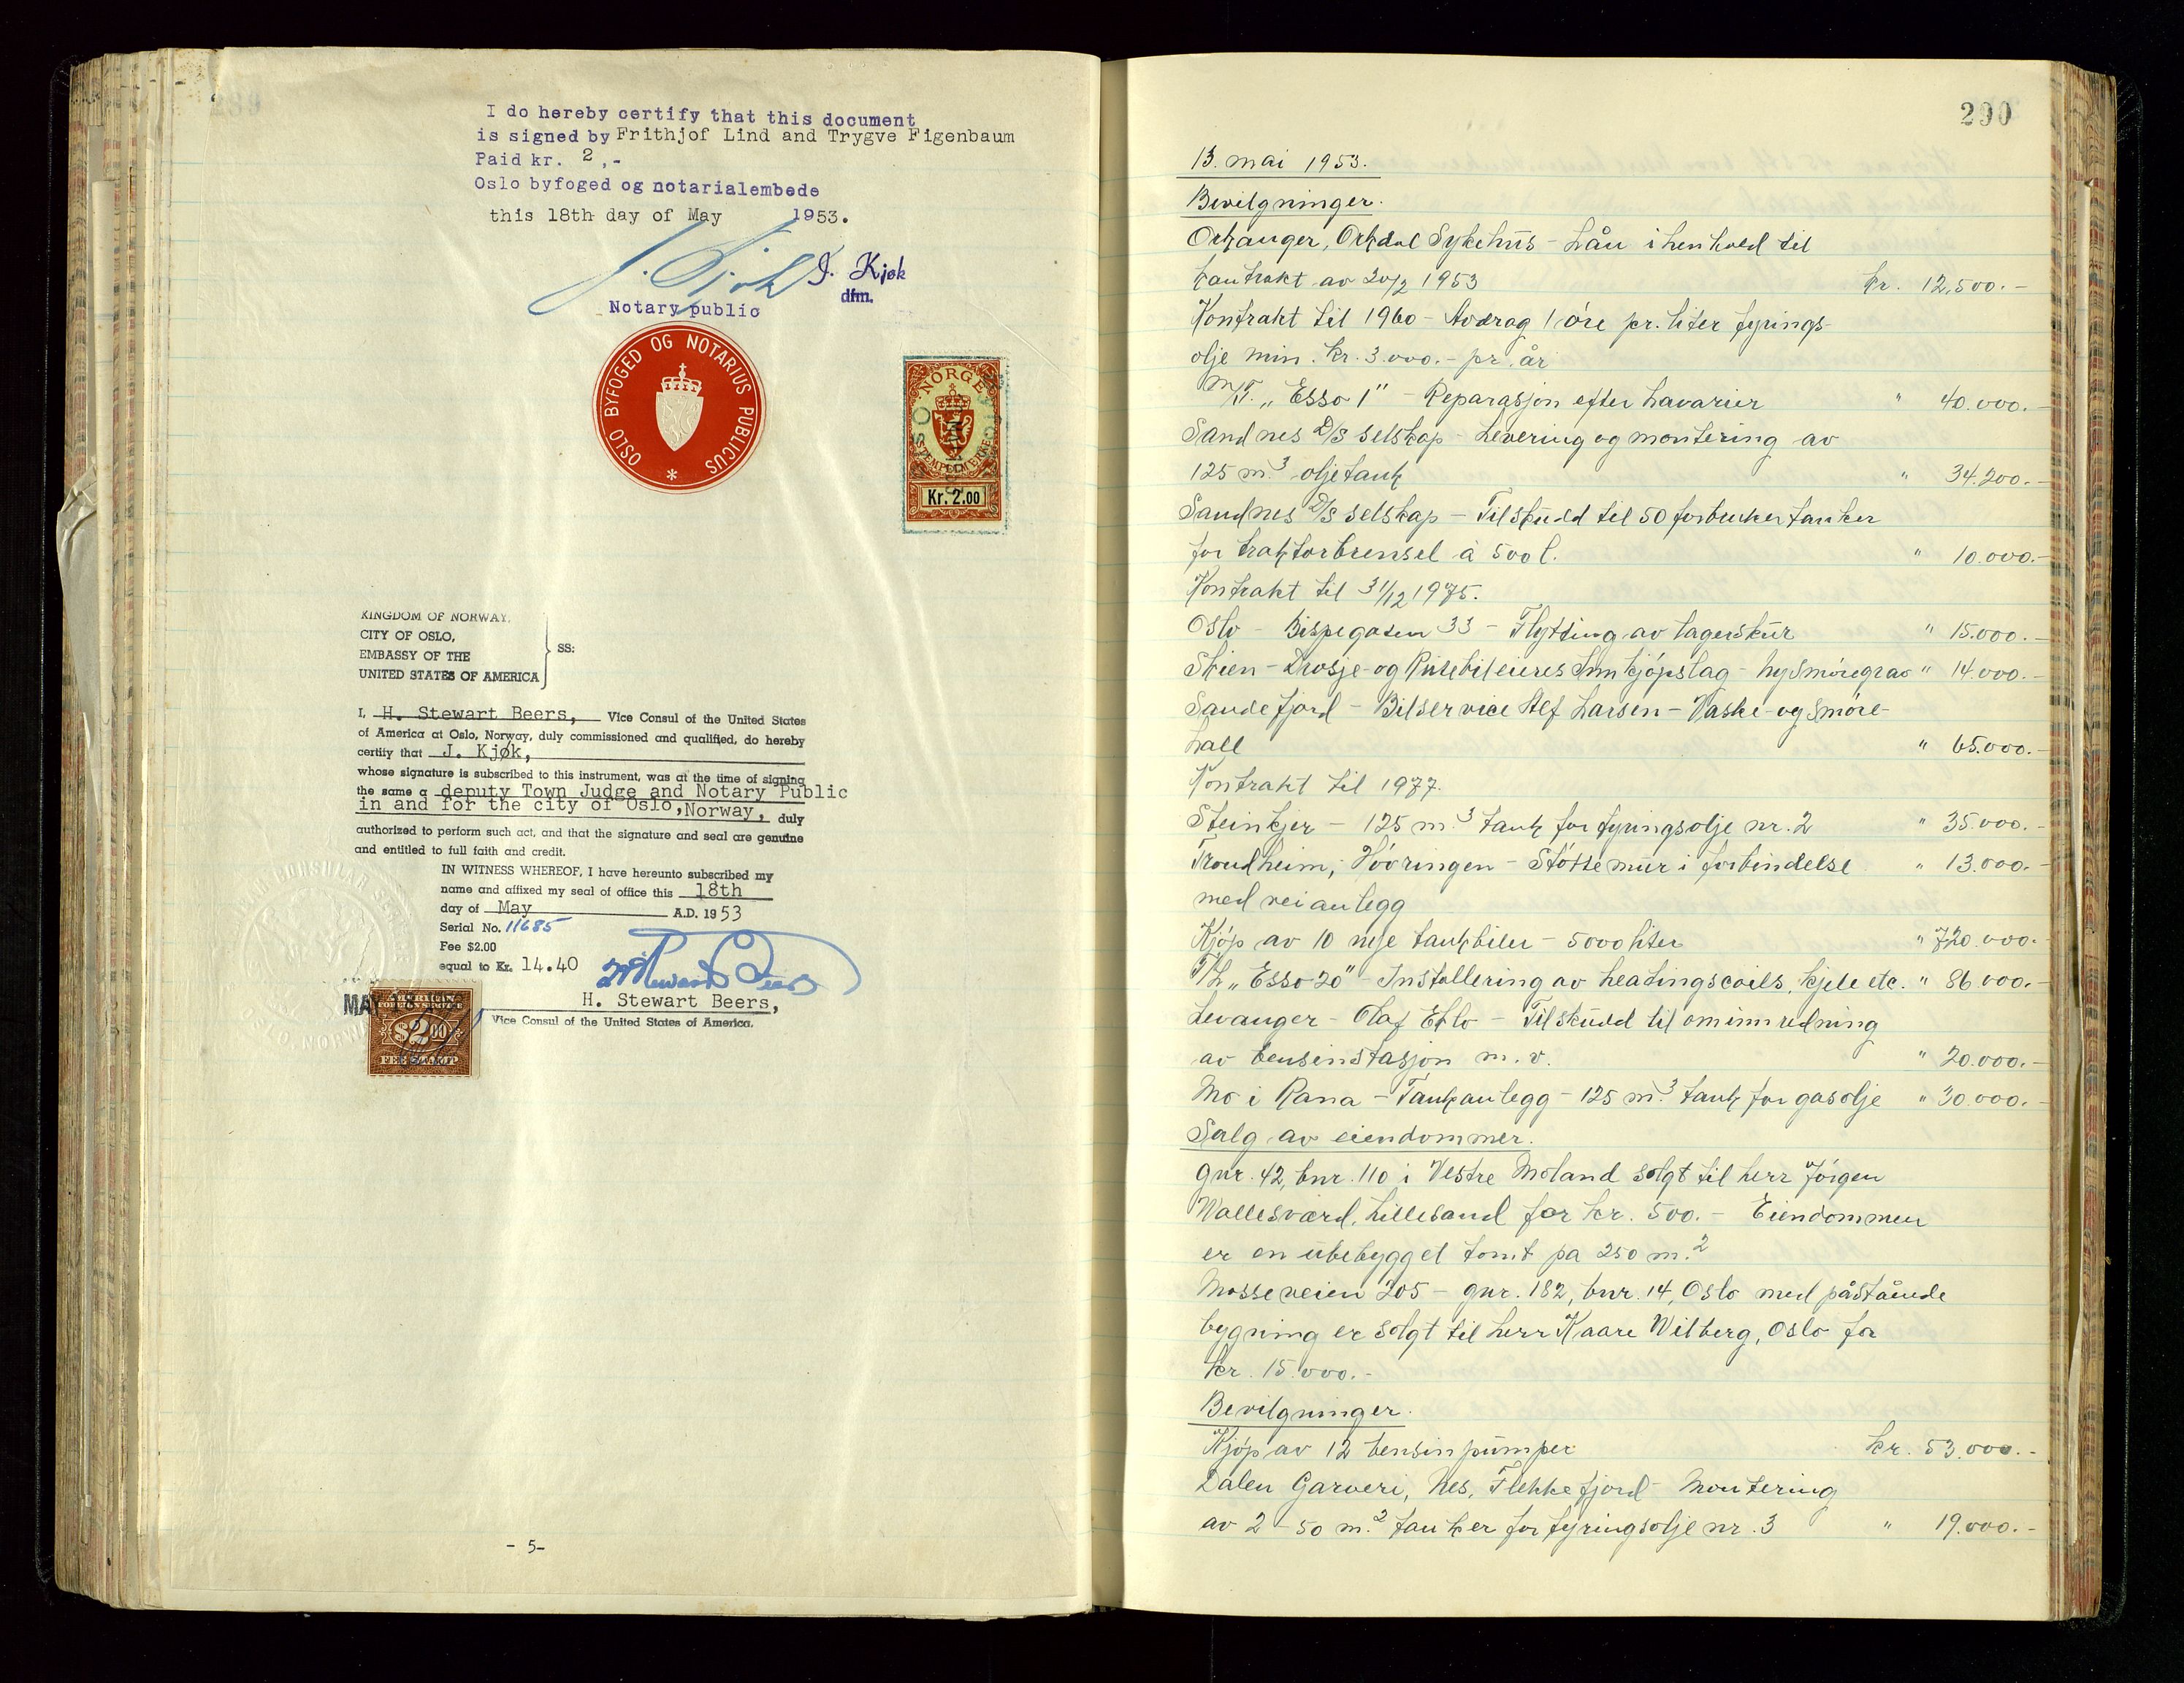 I do hereby certify that this document
is signed by Frithjof Lind and Trygve Figenbaum
Paid kr. 2,-
Oslo byfoged og notarialembede
this 18th day of May 1953.
J. Kjøk
dfm.
Notary public
OSLO BYFOGED OG NOTARIUS PUBLICUS
NORGE
Kr. 2.00
KINGDOM OF NORWAY,
CITY OF OSLO,
EMBASSY OF THE
UNITED STATES OF AMERICA
SS:
I, H. Stewart Beers, Vice Consul of the United States
of America at Oslo, Norway, duly commissioned and qualified, do hereby
certify that J. Kjøk,
whose signature is subscribed to this instrument, was at the time of signing
the same a deputy Town Judge and Notary Public
in and for the city of Oslo, Norway, duly
authorized to perform such act, and that the signature and seal are genuine
and entitled to full faith and credit.
IN WITNESS WHEREOF, I have hereunto subscribed my
name and affixed my seal of office this 18th
day of May A.D. 1953
Serial No. 11685
Fee $2.00
equal to Kr. 14.40
H. Stewart Beers,
Vice Consul of the United States of America.
MAY
AMERICAN
FOREIGN SERVICE
$2.00
FEE STAMP
- 5-
290
13. mai 1953.
Bevilgninger.
Orkanger, Orkdal Sykehus - Lån i henhold til
kontrakt av 20/2 1953 kr. 12,500.-
Kontrakt til 1960 - Avdrag 1 øre pr. liter fyrings-
olje min. kr. 3.000.- pr. år
M/T. „Esso 1" - Reparasjon efter havarier " 40.000.-
Sandnes D/S selskap - Levering og montering av
125 m.3 oljetank " 34.200.-
Sandnes D/S selskap - Tilskudd til 50 forbrukertanker
for traktorbrensel à 500 l. " 10.000.-
Kontrakt til 31/12 1975.
Oslo - Bispegaten 33 - Flytting av lagerskur " 15.000.-
Skien - Drosje- og Rutebileieres Innkjøpslag - ny smøregrav " 14.000.-
Sandefjord - Bilservice Alf Larsen - Vaske- og smøre-
hall " 65.000.-
Kontrakt til 1977.
Steinkjer - 125 m.3 tank for fyringsolje nr. 2 " 35.000.-
Trondheim, Høvringen - Støttemur i forbindelse " 13.000.-
med veianlegg
Kjøp av 10 nye tankbiler - 5000 liter " 720.000.-
T/L „Esso 20" - Installering av heatingscoils, kjele etc. " 86.000.-
Levanger - Olaf Eklo - Tilskudd til ominnredning
av bensinstasjon m.v. " 20.000.-
Mo i Rana - Tankanlegg - 125 m.3 tank for gasolje " 30.000.-
Salg av eiendommer.
gnr. 42, bnr. 110 i Vestre Moland solgt til herr Jørgen
Vallesværd, Lillesand for kr. 500.- Eiendommen
er en ubebygget tomt på 250 m.2
Mosseveien 205 - gnr. 182, bnr. 14, Oslo med påstående
bygning er solgt til herr Kaare Wilberg, Oslo for
kr. 15.000.-
Bevilgninger.
Kjøp av 12 bensinpumper kr. 53.000.-
Dalen Garveri, Nes, Flekkefjord - Montering
av 2 - 50 m.2 tanker for fyringsolje nr. 3 " 19.000.-